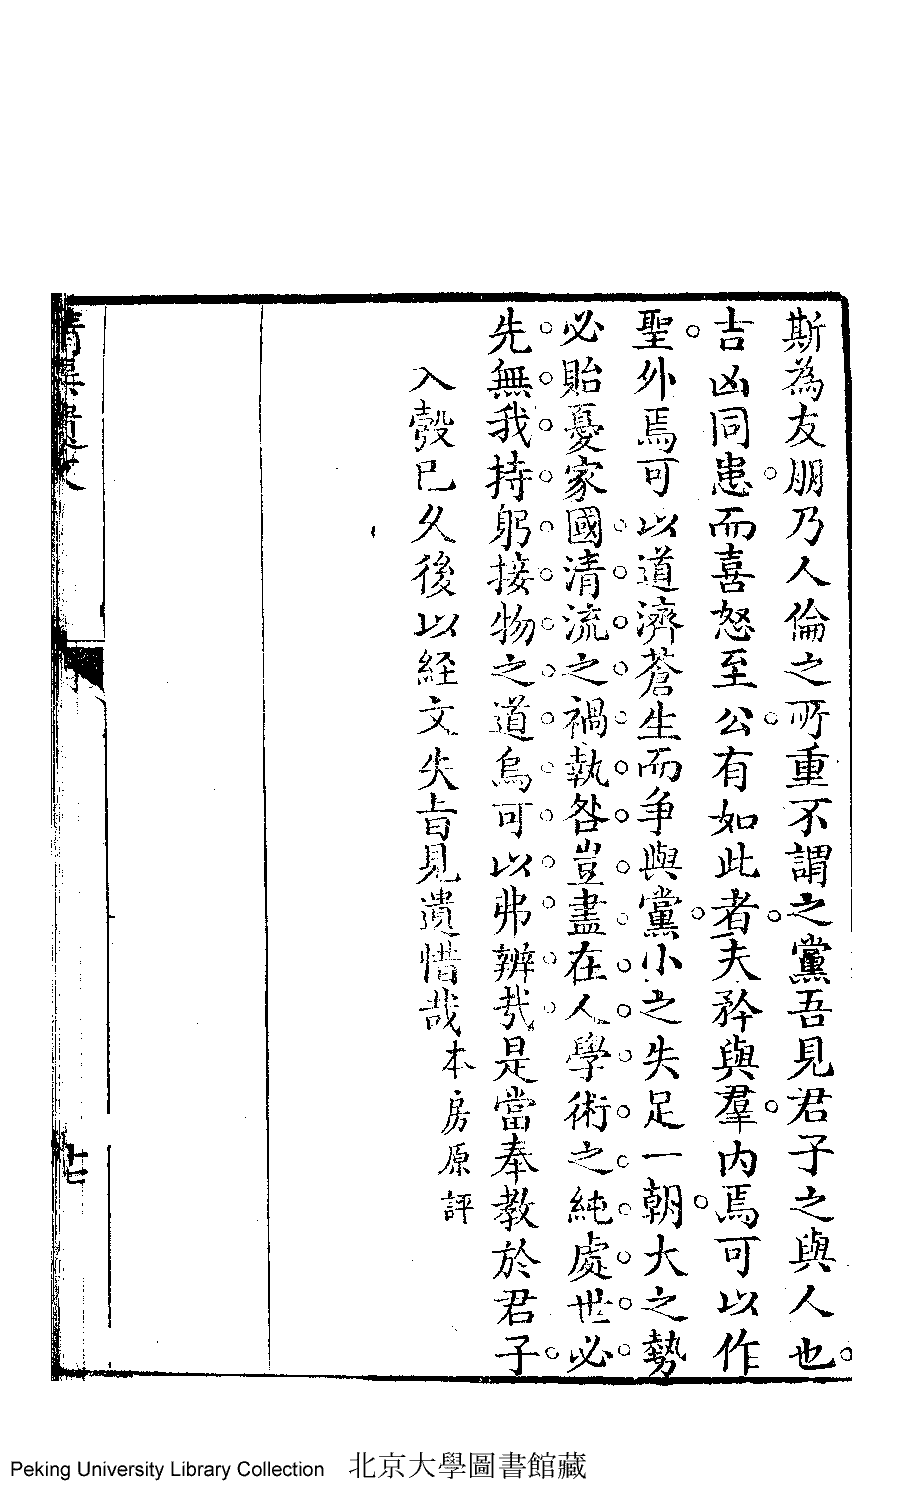 斯為友朋乃人倫之所重不謂之黨吾見君子之與人也
吉凶同患而喜怒至公有如此者夫矜與羣內焉可以作
聖外焉可以道濟蒼生而争與黨小之失足一朝大之勢
必貽憂家國清流之禍執咎豈盡在人學術之純處世必
先無我持躬接物之道烏可以弗辨哉是當奉教於君子
入彀已久後以経文失旨見遺惜哉 本房原評
遺文
十七
Peking University Library Collection 北京大學圖書館藏